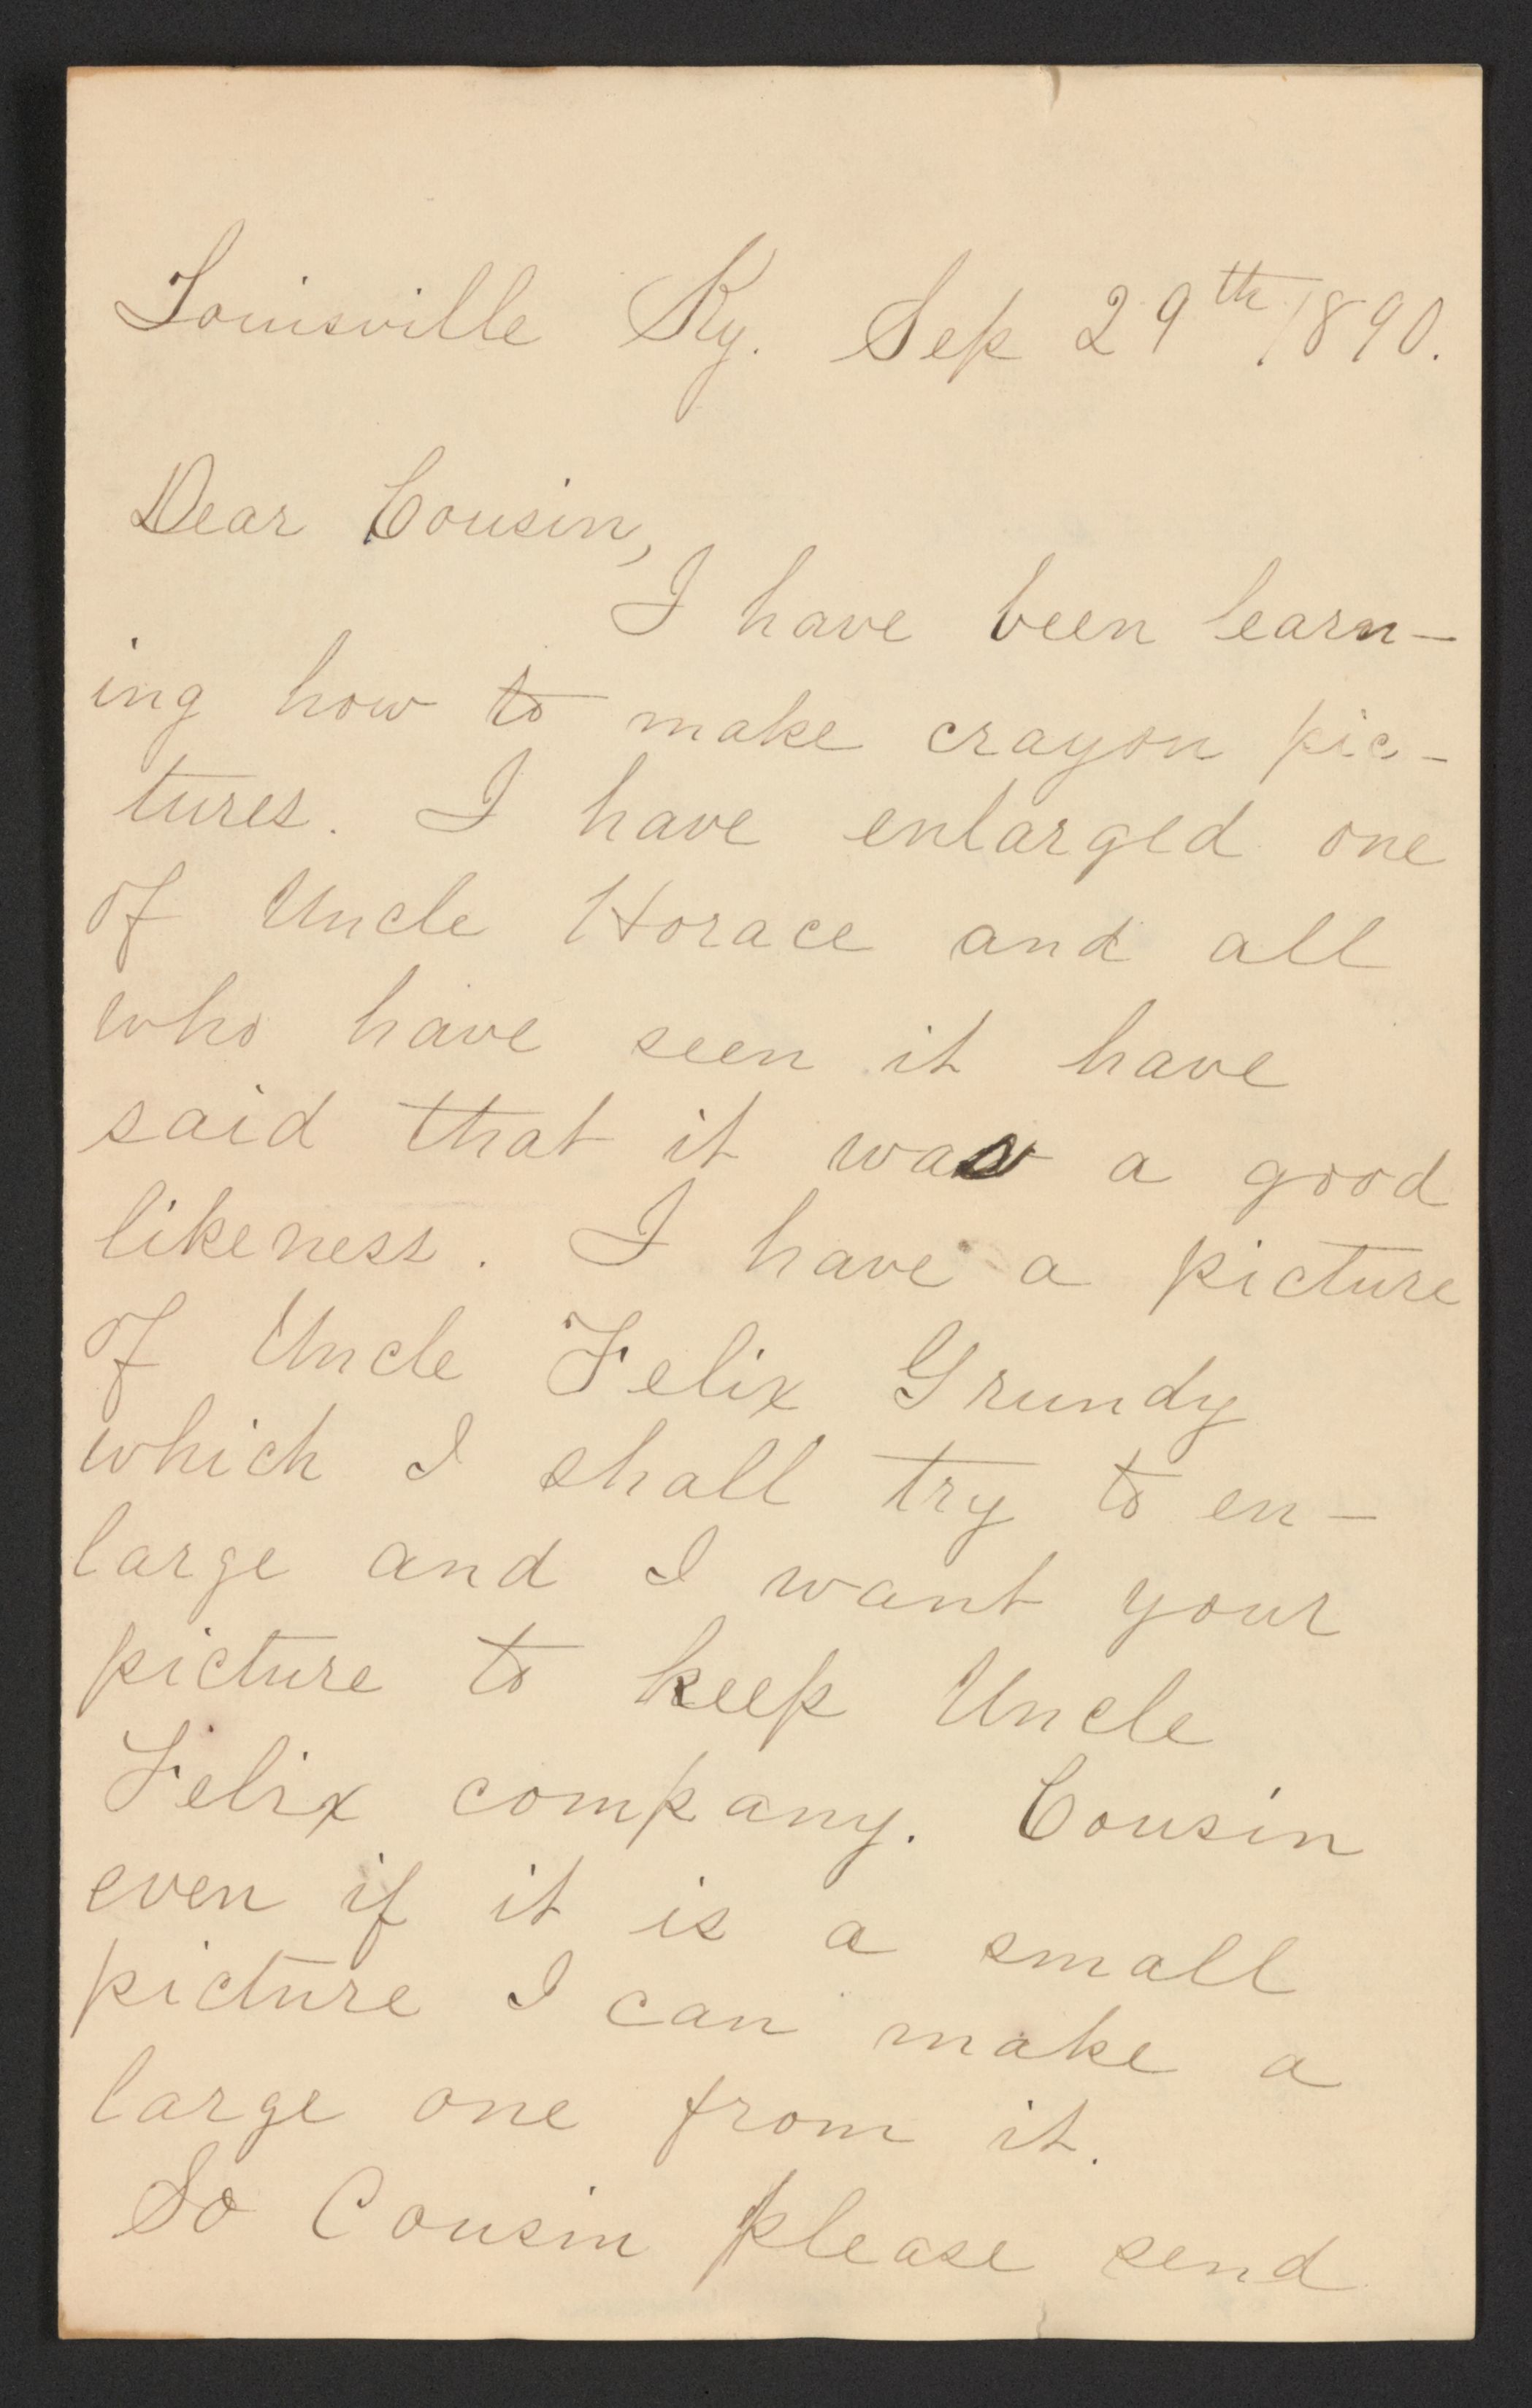 Louisville Ky. Sep 29th 1890.
Dear Cousin,
I have been learn-
ing how to make crayon pic-
tures. I have enlarged one
of Uncle Horace and all
who have seen it have
said that it was a good
likeness. I have a picture
of Uncle Felix Grundy
which I shall try to en-
large and I want your
picture to keep Uncle
Felix company. Cousin
even if it is a small
picture I can make a
large one from it.
So Cousin please send